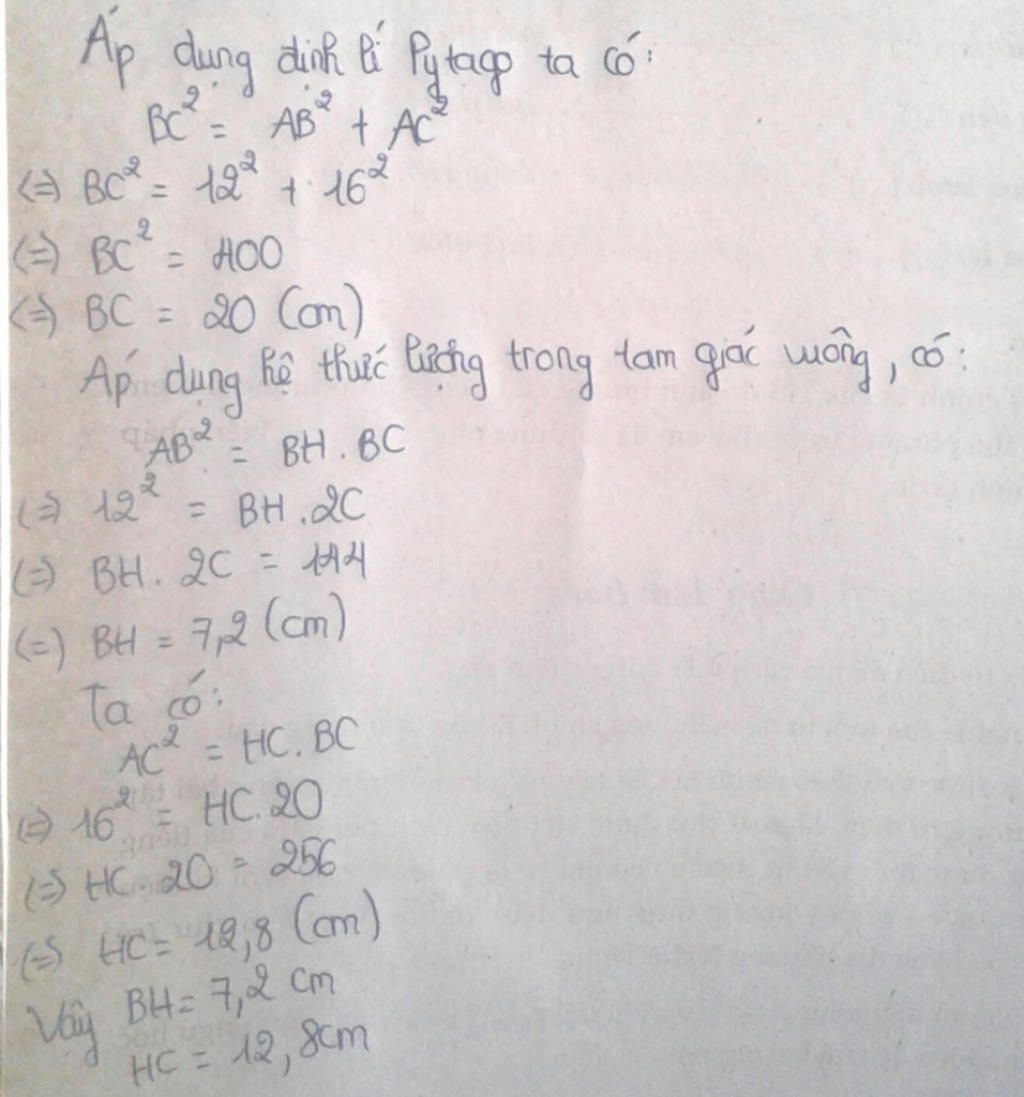 Áp dụng định lí Pytago ta có:
BC² = AB² + AC²
(=) BC² = 12² + 16²
(=) BC² = 400
(=) BC = 20 (cm)
Áp dụng hệ thức lượng trong tam giác vuông, có:
AB² = BH . BC
(=) 12² = BH . 20
(=) BH . 20 = 144
(=) BH = 7,2 (cm)
Ta có:
AC² = HC . BC
(=) 16² = HC . 20
(=) HC . 20 = 256
(=) HC = 12,8 (cm)
Vậy BH = 7,2 cm
HC = 12,8cm